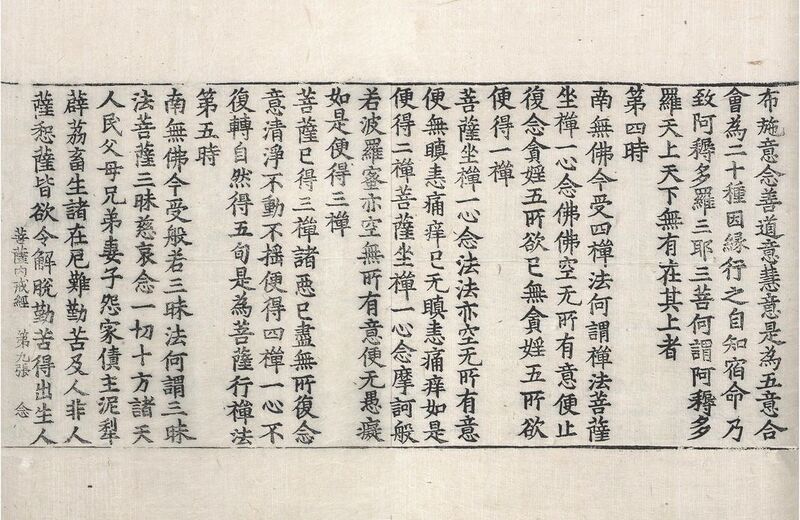 布施意念善道意慧意是為五意合
會為二十種因縁行之自知宿命乃
致阿耨多羅三耶三菩何謂阿耨多
羅天上天下無有在其上者
第四時
南無佛今受四禪法何謂禪法菩薩
坐禪一心念佛佛空无所有意便止
復念貪婬五所欲已無貪婬五所欲
便得一禪
菩薩坐禪一心念法法亦空无所有意
便無瞋恚痛痒已无瞋恚痛痒如是
便得二禪菩薩坐禪一心念摩訶般
若波羅蜜亦空無所有意便无愚癡
如是便得三禪
菩薩已得三禪諸惡已盡無所復念
意清淨不動不揺便得四禪一心不
復轉自然得五旬是為菩薩行禪法
第五時
南無佛今受般若三昧法何謂三昧
法菩薩三昧慈哀念一切十方諸天
人民父母兄弟妻子怨家債主泥犁
薜荔畜生諸在厄難勤苦及人非人
薩恕薩皆欲令解脫勤苦得出生人
菩薩内戒經 第九張 念